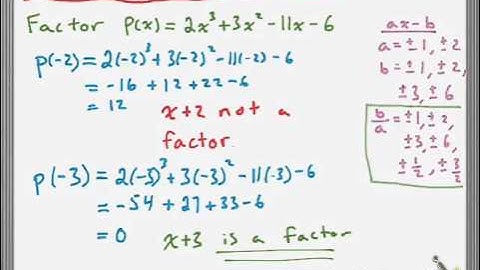 Factor P(x) = 2x³+3x²-11x-6
p(-2) = 2(-2)³+3(-2)²-11(-2)-6
= -16 + 12 + 22 - 6
= 12
x+2 not a
factor.
p(-3) = 2(-3)³+3(-3)²-11(-3)-6
= -54 + 27 + 33 - 6
= 0
x+3 is a factor
ax-b
a = ±1, ±2
b = ±1, ±2,
±3, ±6
b/a = ±1, ±2,
±3, ±6,
±1/2, ±3/2